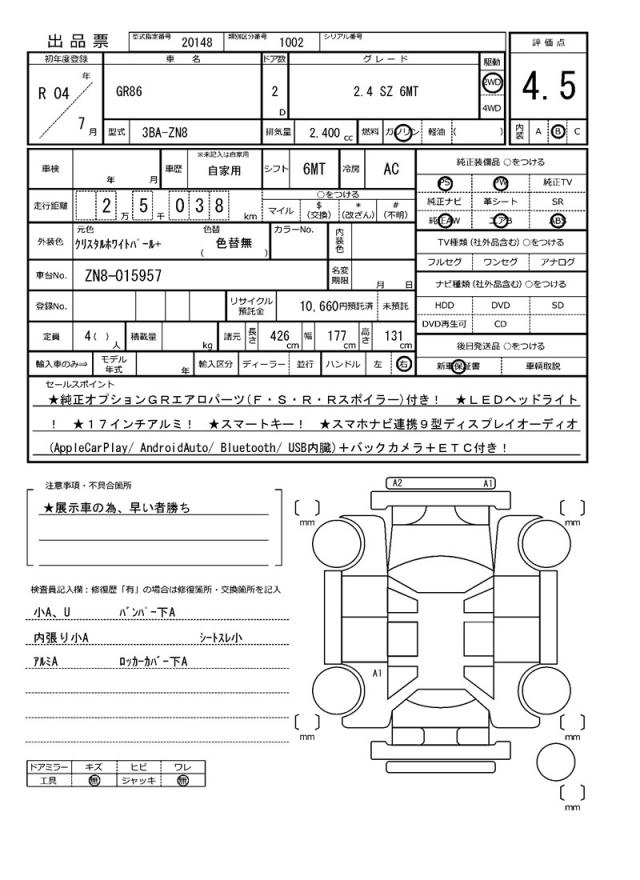 出品票
型式指定番号 20148 類別区分番号 1002 シリアル番号
評価点
4.5
内装 A B C
初年度登録 車名 ドア数 グレード 駆動
R 04 年 7 月
GR86 2 D 2.4 SZ 6MT 2WD 4WD
型式 3BA-ZN8 排気量 2,400 cc 燃料 ガソリン 軽油 ( )
車検 年 月 車歴 ※未記入は自家用 自家用 シフト 6MT 冷房 AC
走行距離 2 万 5 千 0 3 8 km
○をつける
マイル $(交換) *(改ざん) #(不明)
外装色 元色 クリスタルホワイトパール+ 色替 ( 色替無 ) カラーNo. 内装色
車台No. ZN8-015957 名変期限 月 日
登録No. リサイクル預託金 10,660円預託済 未預託
定員 4( )人 積載量 kg 諸元 長さ 426cm 幅 177cm 高さ 131cm
輸入車のみ⇒ モデル年式 年 輸入区分 ディーラー 並行 ハンドル 左 右
純正装備品 ○をつける
PS PW 純正TV
純正ナビ 革シート SR
純正AW エアB ABS
TV種類(社外品含む)○をつける
フルセグ ワンセグ アナログ
ナビ種類(社外品含む)○をつける
HDD DVD SD
DVD再生可 CD
後日発送品 ○をつける
新車保証書 車輌取説
セールスポイント
★純正オプションGRエアロパーツ(F・S・R・Rスポイラー)付き! ★LEDヘッドライト
! ★17インチアルミ! ★スマートキー! ★スマホナビ連携9型ディスプレイオーディオ
(AppleCarPlay/ AndroidAuto/ Bluetooth/ USB内臓)+バックカメラ+ETC付き!
注意事項・不具合箇所
★展示車の為、早い者勝ち
検査員記入欄:修復歴「有」の場合は修復箇所・交換箇所を記入
小A、U バンパー下A
内張り小A シートスレ小
アルミA ロッカーカバー下A
ドアミラー キズ ヒビ ワレ
工具 無 ジャッキ 無
A2 A1
[ ] mm [ ] mm
A1
[ ] mm [ ] mm
[ ] mm